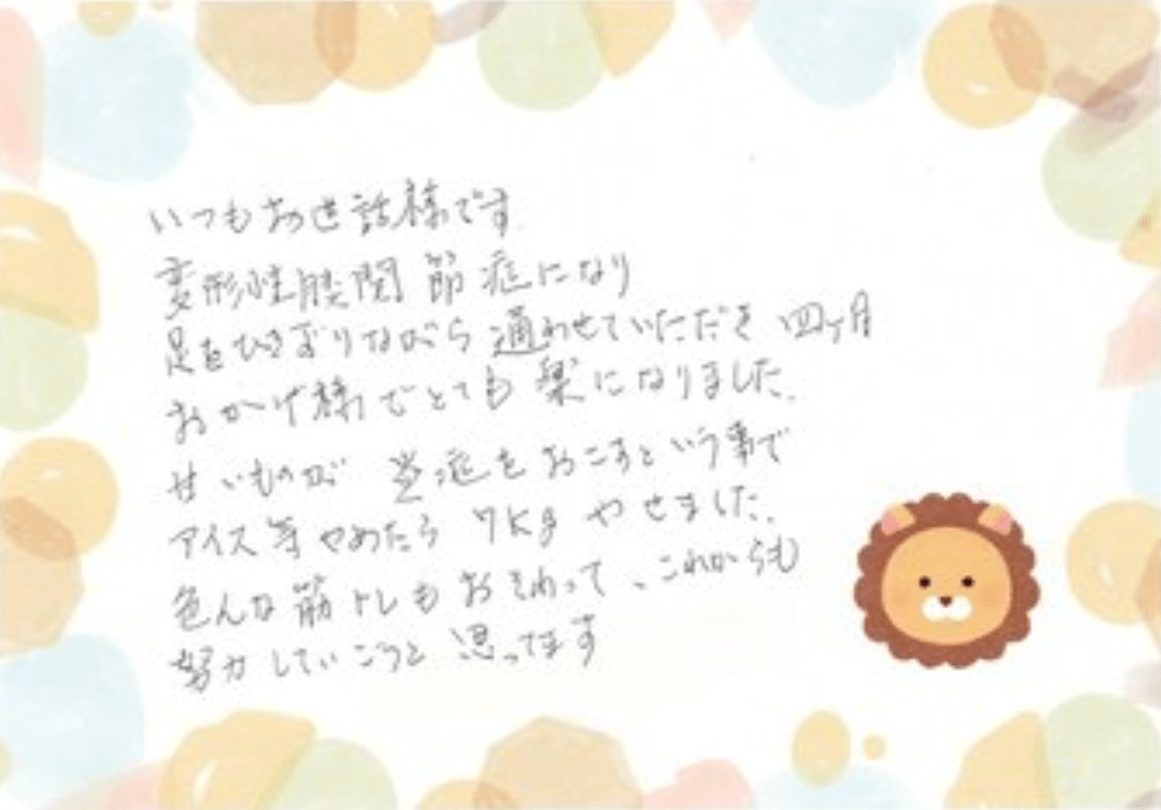 いつもお世話様です.
変形性股関節症になり
足をひきずりながら通わせていただき四ヶ月
おかげ様でとても楽になりました.
甘いものが炎症をおこすという事で
アイス等やめたら7kgやせました.
色んな筋トレもおそわって、これからも
努力していこうと思ってます